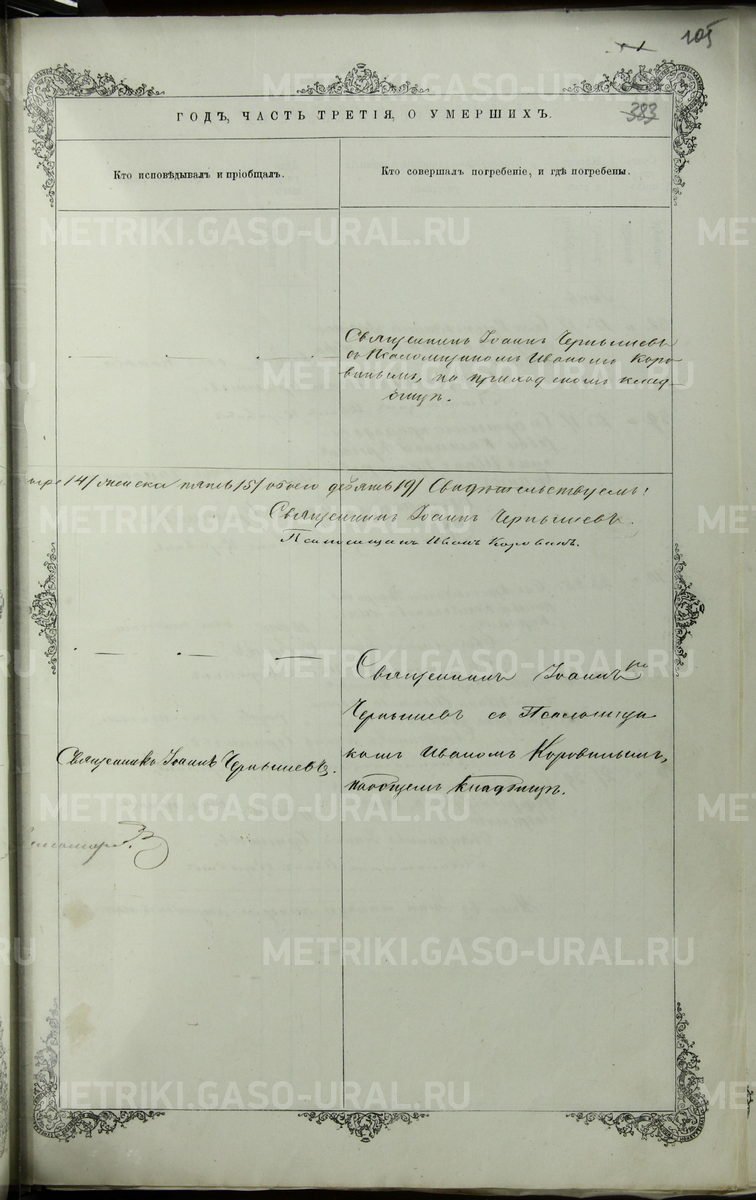 105
383
ГОДЪ, ЧАСТЬ ТРЕТІЯ, О УМЕРШИХЪ.
Кто исповѣдывалъ и пріобщалъ.
Кто совершалъ погребеніе, и гдѣ погребены.
Священникъ Іоаннъ Чернышевъ
съ Псаломщикомъ Иваномъ Коро-
винымъ, на приходскомъ клад-
бищѣ.
/4/ женска пять /5/ обоего девять /9/ Свидѣтельствуемъ:
Священникъ Іоаннъ Чернышевъ.
Псаломщикъ Иванъ Коровинъ.
Священникъ Іоаннъ
Чернышевъ съ Псаломщи
комъ Иваномъ Коровинымъ,
на общемъ кладбищѣ.
Священникъ Іоаннъ Чернышевъ.
METRIKI.GASO-URAL.RU